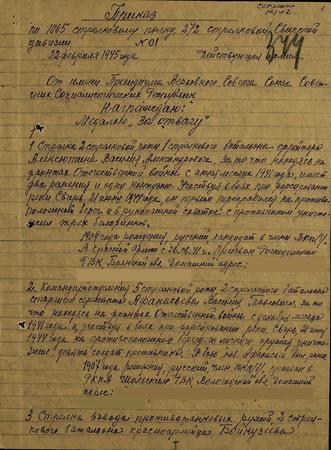 Приказ
по 1065 стрелковому полку 272 стрелковой Свирской
дивизии № 01
22 февраля 1945 года Действующая армия
379
От имени Президиума Верховного Совета Союза Совет-
ских Социалистических Республик
Награждаю:
Медалью "За отвагу"
1 Стрелка 2 стрелковой роты 1 стрелкового батальона ефрейтора
Василия Александровича, за то что находясь на
фронтах Отечественной войны с 1941 года, имеет
два ранения и одну контузию. Участвуя в боях при форсировании
реки Свирь, 21 июня 1944 года, он первым переправился на противо-
положный берег и в рукопашной схватке с противником уничто-
жил трех
рождения, русский, кандидат в члены ВКП/б/.
В Красной Армии с Призван
РВК, обл. Домашний адрес:
2. Командира отделения 5 стрелковой роты, 2 стрелкового батальона
старшего сержанта Афанасьева Павловича, за то
что находясь на фронтах Отечественной войны с декабря месяца
1941 года и участвуя в боях при форсировании реки Свирь, 21 июня
1944 года на противоположном берегу из личного оружия уничто-
жил солдат противника. В бою тов. Афанасьев был ранен
1907 года рождения, русский, член ВКП/б/, призван в
РККА РВК, Вологодской обл. Домашний
адрес:
3 Стрелка взвода противотанковых ружей, 2 стрел-
кового батальона красноармейца